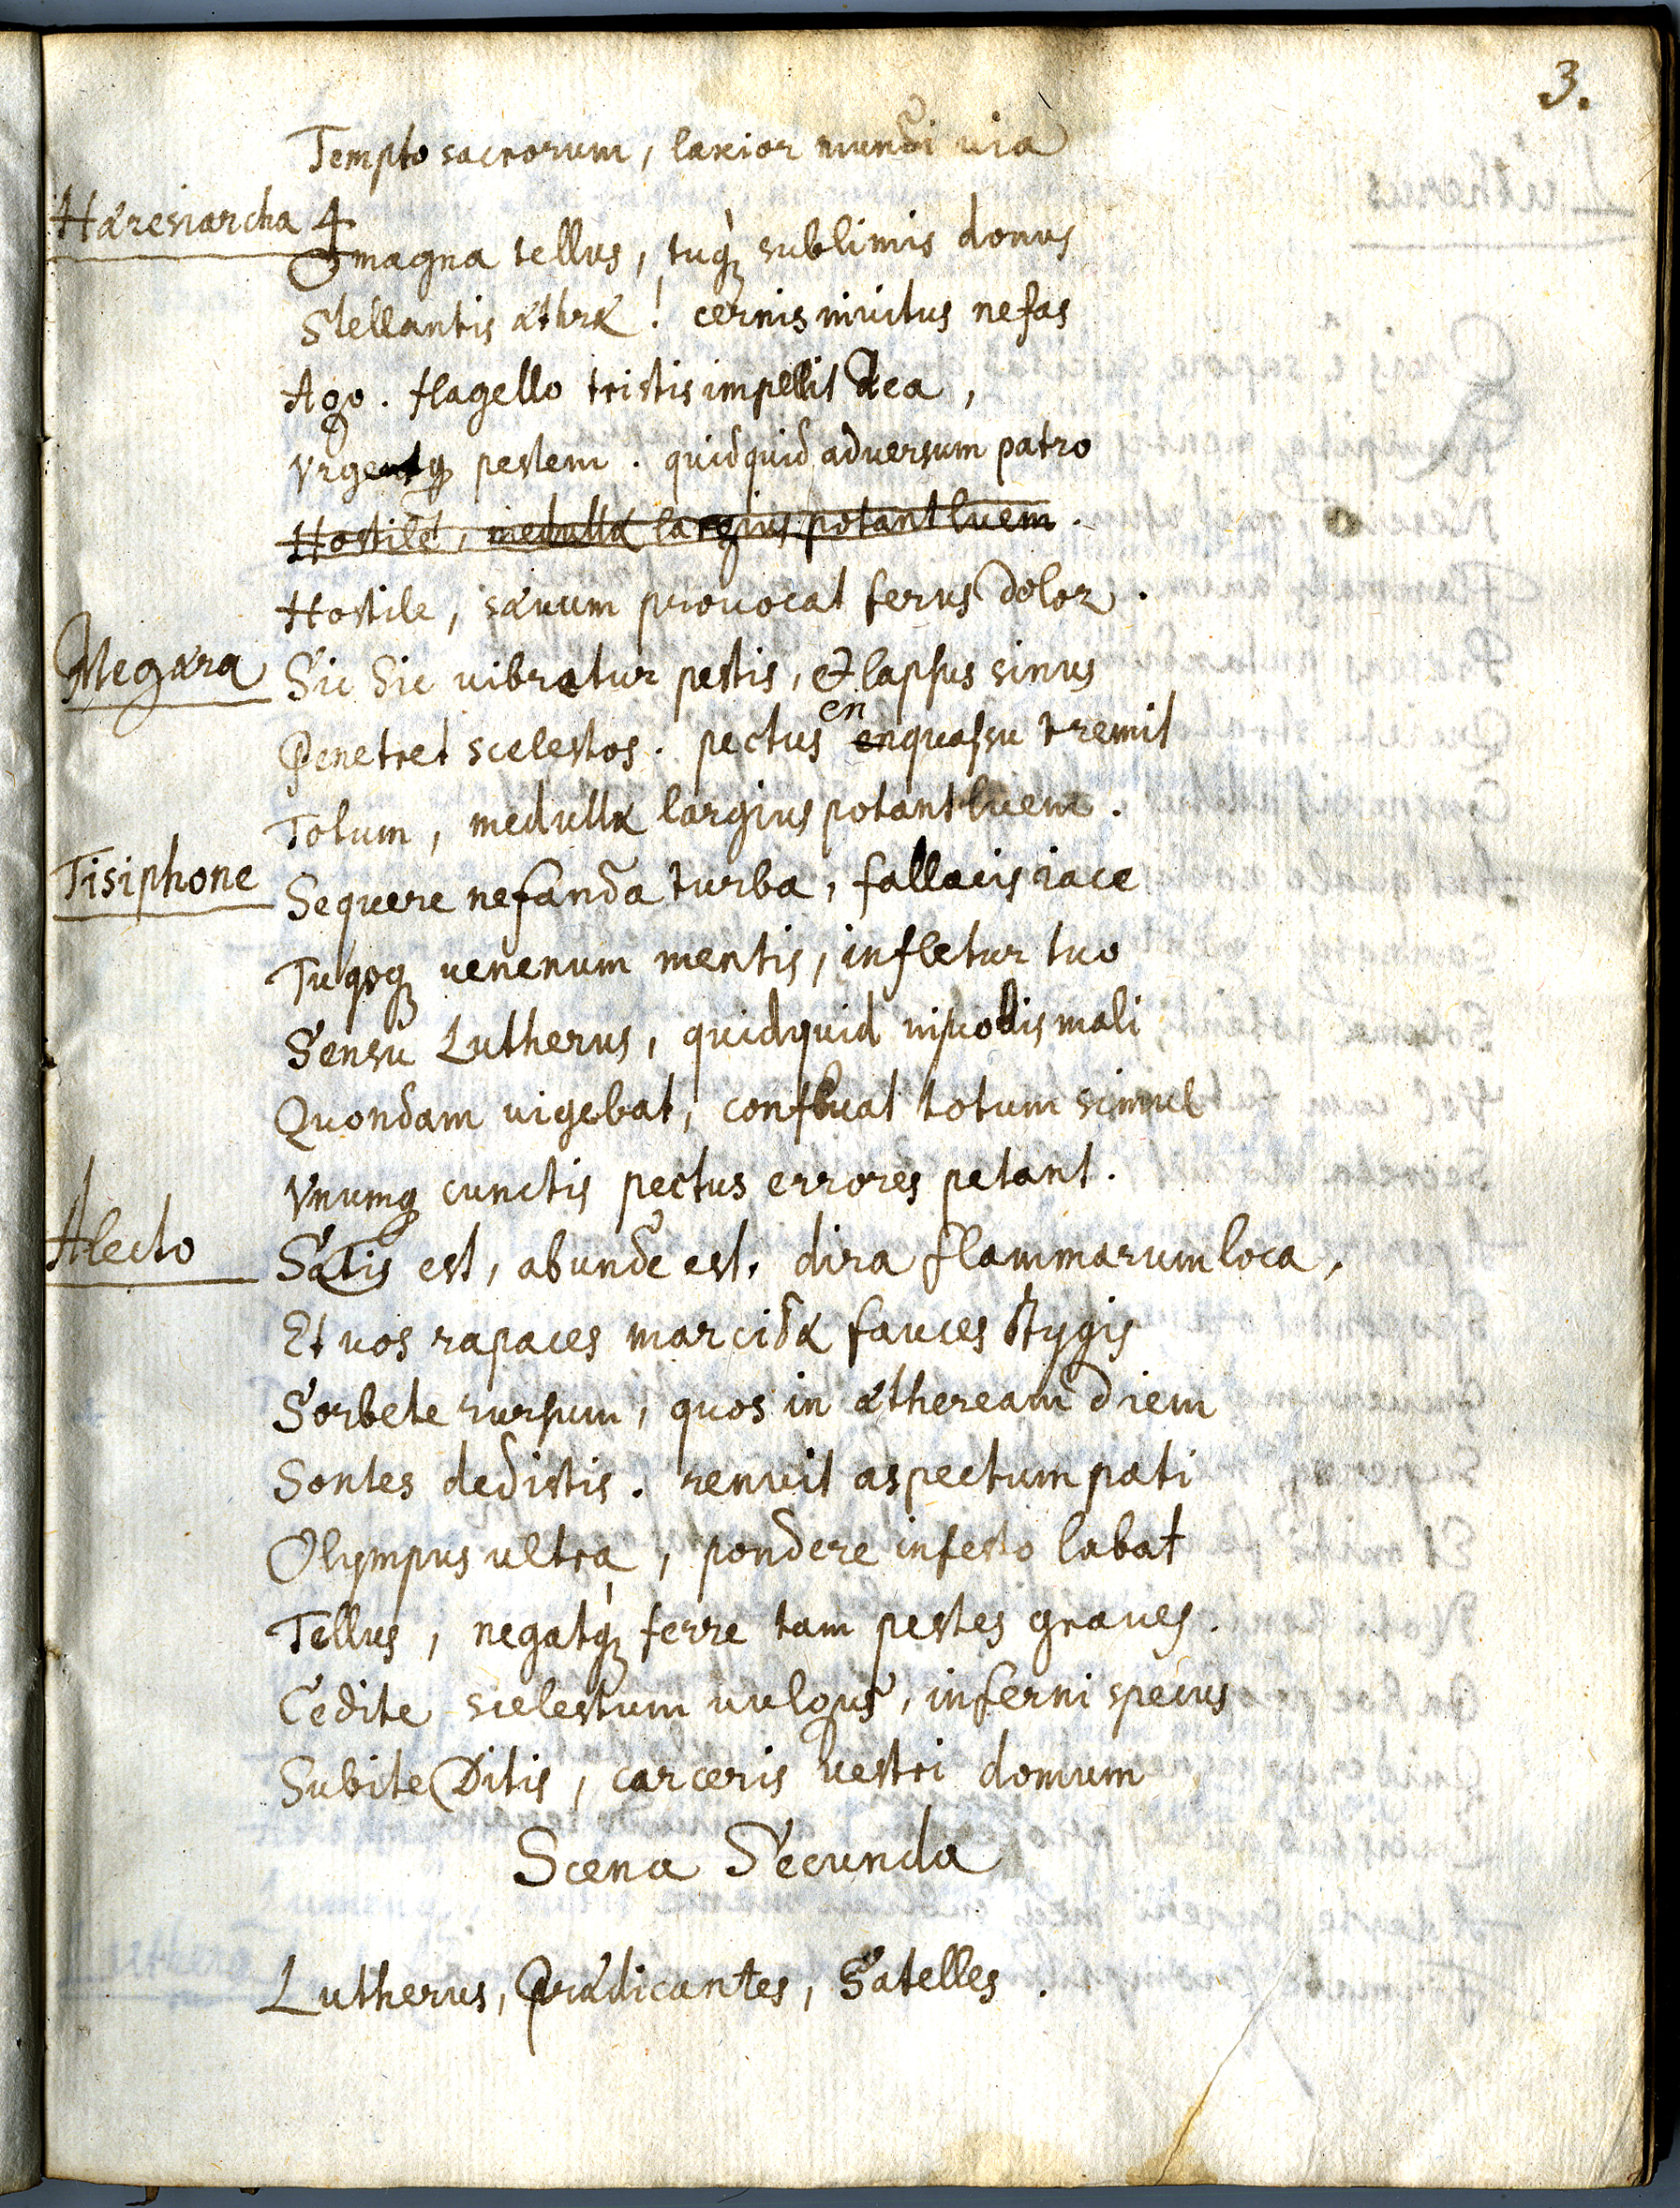 3.
Tempto sacrorum, laxior mundi via
Hæresiarcha 4
O magna tellus, tuq́; sublimis domus
Stellantis æthræ! cernis invitus nefas
Ago. flagello tristis impellit dea,
Vrgetq; pestem. quidquid adversum patro
Hostile, medullæ largius potant luem.
Hostile, sævum provocat ferus dolor.
Megæra Sic Sic vibratur pestis, et lapsus sinus
Penetret scelestos. pectus en quassu tremit
Totum, medullæ largius potant luem.
Tisiphone Sequere nefanda turba, fallacis iace
Tuqoq; venenum mentis, infletur tuo
Sensu Lutherus, quidquid in vobis mali
Quondam vigebat, confluat totum simul
Vnumq; cunctis pectus errores petant.
Alecto Satis est, abunde est, dira flammarum loca,
Et vos rapaces marcidæ fauces Stygis
Sorbete rursum, quos in ætheream diem
Sontes dedistis. renuit aspectum pati
Olympus ultrà, pondere infesto labat
Tellus, negatq́; ferre tam pestes graves.
Cedite scelestum vulgus, inferni specus
Subite Ditis, carceris vestri domum
Scena Secunda
Lutherus, Prædicantes, Satelles.